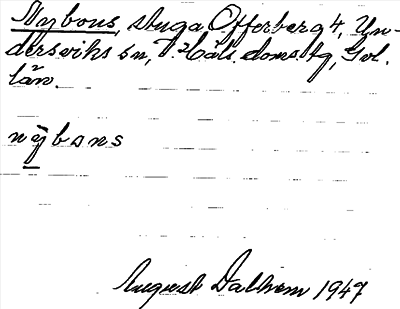 Nybons, stuga Offerberg 4, Un-
dersviks sn, V. Häls. doms. tg, Gvl.
län.
nybons
August Dalhem 1947